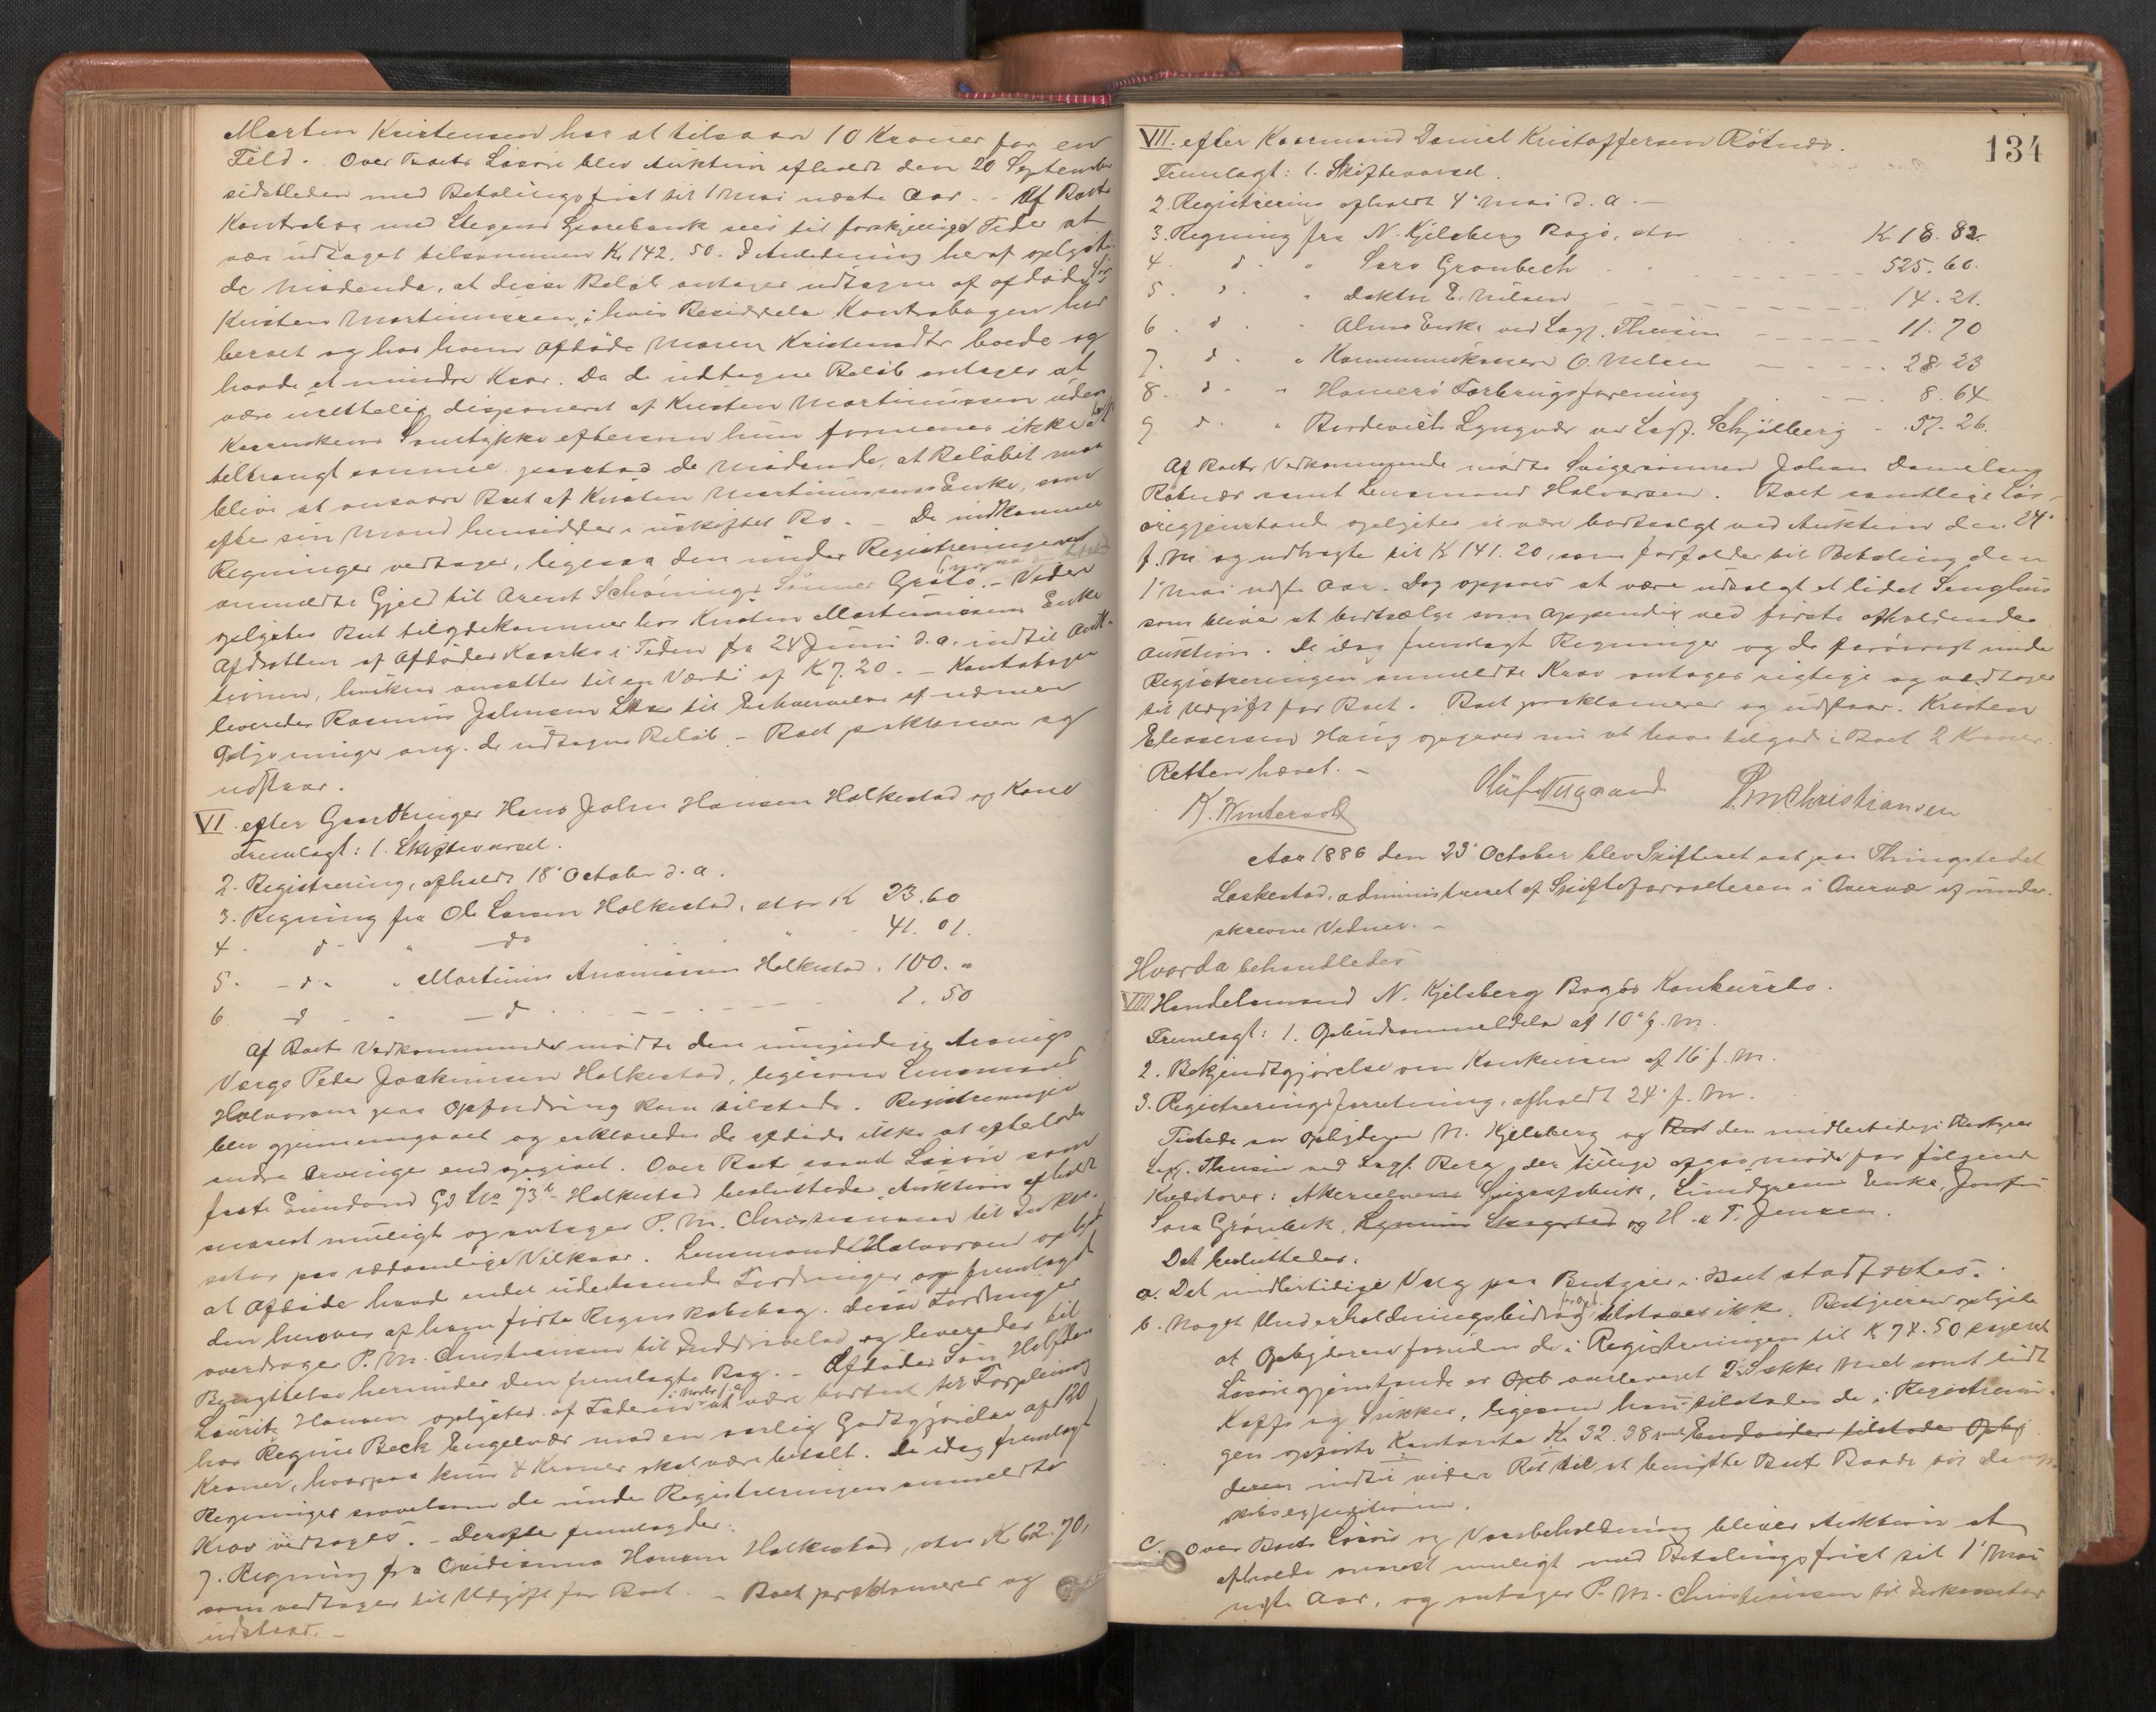 Morten Kristensen har at tilsvare 10 Kroner for en
Feld. - Over Boets Løsøre blev Auktion afholdt den 20 September
sidstleden med Betalingsfrist til 1 Mai næste Aar. - Af Boets
Kontrabog med Stegens Sparebank sees til forskjellige Tider at
være udtaget tilsammen K 142.50. I Anledning heraf oplyste
de Mødende, at disse Beløb antages udtagne af afdøde
Kristen Martinussen, i hvis Besiddelse Kontrabogen har
beroet og hos hvem Afdøde Maren Kristensdtr boede og
havde et mindre Kaar. Da de udtagne Beløb antages at
være urettelig disponeret af Kristen Martinussen uden
Kaarenkens Samtykke eftersom hun formenes ikke at have
tiltrængt samme paastod de Mødende, at Beløbet maa
blive at ansvare Boet af Kristen Martinussens Enke, som
efter sin Mand hensidder i uskiftet Bo. - De indkomne
Regninger vedtages, ligesaa den under Registreringen
anmeldte Gjeld til Arent Schønings Sønner Grøtø. - Videre
oplystes Boet tilgodekommer hos Kristen Martinussens Enke
Afdraatten af Afdødes Kaarko i Tiden fra 24 Juni d.a. indtil Auk-
tionen, hvilken ansættes til en Værdi af K 7.20. - Kontrabogen
leveredes Rasmus Johnsen til Erhvervelse af nærmere
Oplysninger ang. de udtagne Beløb. - Boet proklameres og
udstaar.
VI. efter Gaardbruger Hans John Hansen Holkestad og Kone
Fremlagt: 1. Skiftevarsel.
2. Registrering, afholdt 18' October d.a.
3. Regning fra Ole Larsen Holkestad, stor K 23.60
4. d- " do " 41.01.
5. - d- " Martinus Ananiassen Holkestad, 100. "
6 d - " - d - 1.50
Af Boets Vedkommende mødte den umyndige Arvings
Værge Peder Joakimsen Holkestad, ligesom Lensmand
Halvorsen paa Opfordring kom tilstede. Registreringen
blev gjennemgaaet og erklæredes de afdøde ikke at efterlade
andre Arvinger end opgivet. Over Boets saavel Løsøre som
faste Eiendomd Gd No 73b Holkestad besluttedes Auktion afholdt
snarest muligt og antages P. M. Christiansen til Inkas-
sator paa sædvanlige Vilkaar. Lensmand Halvorsen oplyste
at Afdøde havde endel udestaaende Fordringer og fremlagde
den herover af ham førte Regnskabsbog. Disse Fordringer
overdrages P. M. Christiansen til Inddrivelse og leveredes til
Benyttelse herunder den fremlagte Bog. - Afdødes Søn Halfdan
Lauritz Hansen oplystes af Faderen at være bortsat til Forpleining
hos Regine Beck Engelvær mod en aarlig Godtgjørelse af 120
Kroner, hvorpaa kun 4 Kroner skal være betalt. De idag fremlagte
Regninger saavelsom de under Registreringen anmeldte
Krav vedtages. - Derefter fremlagdes:
7. Regning fra Ovidianna Hansen Holkestad, stor K 62.70,
som vedtages til Udgift for Boet. - Boet proklameres og
udstaar. -
134
VII. efter Kaarmand Daniel Kristoffersen Røtnes.
Fremlagt: 1. Skiftevarsel.
2. Registrering afholdt 4' Mai d.a. -
3. Regning fra N. Kjelsberg Bogø, stor K 18.82.
4. d. " Sara Grønbech 525.60.
5. d. " Doktor E. Nilsen 14.21.
6. d. " Alms Enke ved Sagf. Thesen 11.70
7. d. " Kommunikasserer O. Nilsen 28.23
8. d. " Hamerø Forbrugsforening 8.64
9 d. " Bordevich Lyngvær ved Sagf. Schjelberg 57.26.
Af Boets Vedkommende mødte Svigersønnen Johan Danielsen
Røtnes samt Lensmand Halvorsen. Boets samtlige Løs-
øregjenstande oplystes at være bortsolgt ved Auktion den 24'
f.M. og udbragte til K 141.20, som forfalder til Betaling den
1' Mai næste Aar. Dog opgaves at være udsolgt et lidet Senghus
som bliver at bortsælge som Appendix ved første afholdende
Auktion. De idag fremlagte Regninger og de forøvrigt under
Registreringen anmeldte Krav antages rigtige og vedtages
til Udgift for Boet. Boet proklameres og udstaar. Kristen
Eleasersen Haug opgaves nu at have tilgode i Boet 2 Kroner.
Retten hævet. -
K. Winterodt Oluf Nygaard P. M. Christiansen
Aar 1886 den 23' October blev Skifteret sat paa Thingstedet
Laskestad, administreret af Skifteforvalteren i Overvær af under-
skrevne Vidner. -
Hvorda behandledes
VIII Handelsmand N. Kjelsberg Bogøs Konkursbo.
Fremlagt: 1. Opbudsanmeldelse af 10' f.M.
2. Bekjendtgjørelse om Konkursen af 16' f.M.
3. Registreringsforretning, afholdt 24' f.M.
Tilstede var Opbyderen N. Kjelsberg og den midlertidige Bestyrer
Sagf. Thesen ved Sagf. Berg, der tillige afgav møde for følgende
Kreditorer: Akerselvens Spigerfabrik, Lundgreens Enke, Jomfru
Sara Grønbech, og H. & T. Jensen.
Det besluttedes:
a. Det midlertidige Valg paa Bestyrer i Boet stadfæstes.
b. Noget Underholdningsbidrag tilstaaes ikke. Bestyreren oplyste
at Opbyderen foruden de i Registreringen til K 74.50 opgivne
Løsøregjenstande er overleveret 2 Sække Mel samt lidt
Kaffe og Sukker, ligesom han tilstodes de i Registrerin-
gen opførte Kontanter K 32.38 samt Endvidere tilstodes Opby-
deren indtil videre Ret til at benytte Boets Baade til Damp-
skibsexpeditionen.
c. Over Boets Løsøre og Varebeholdning bliver Auktion at
afholde snarest muligt med Betalingsfrist til 1' Mai
næste Aar, og antages P. M. Christiansen til Inkassator